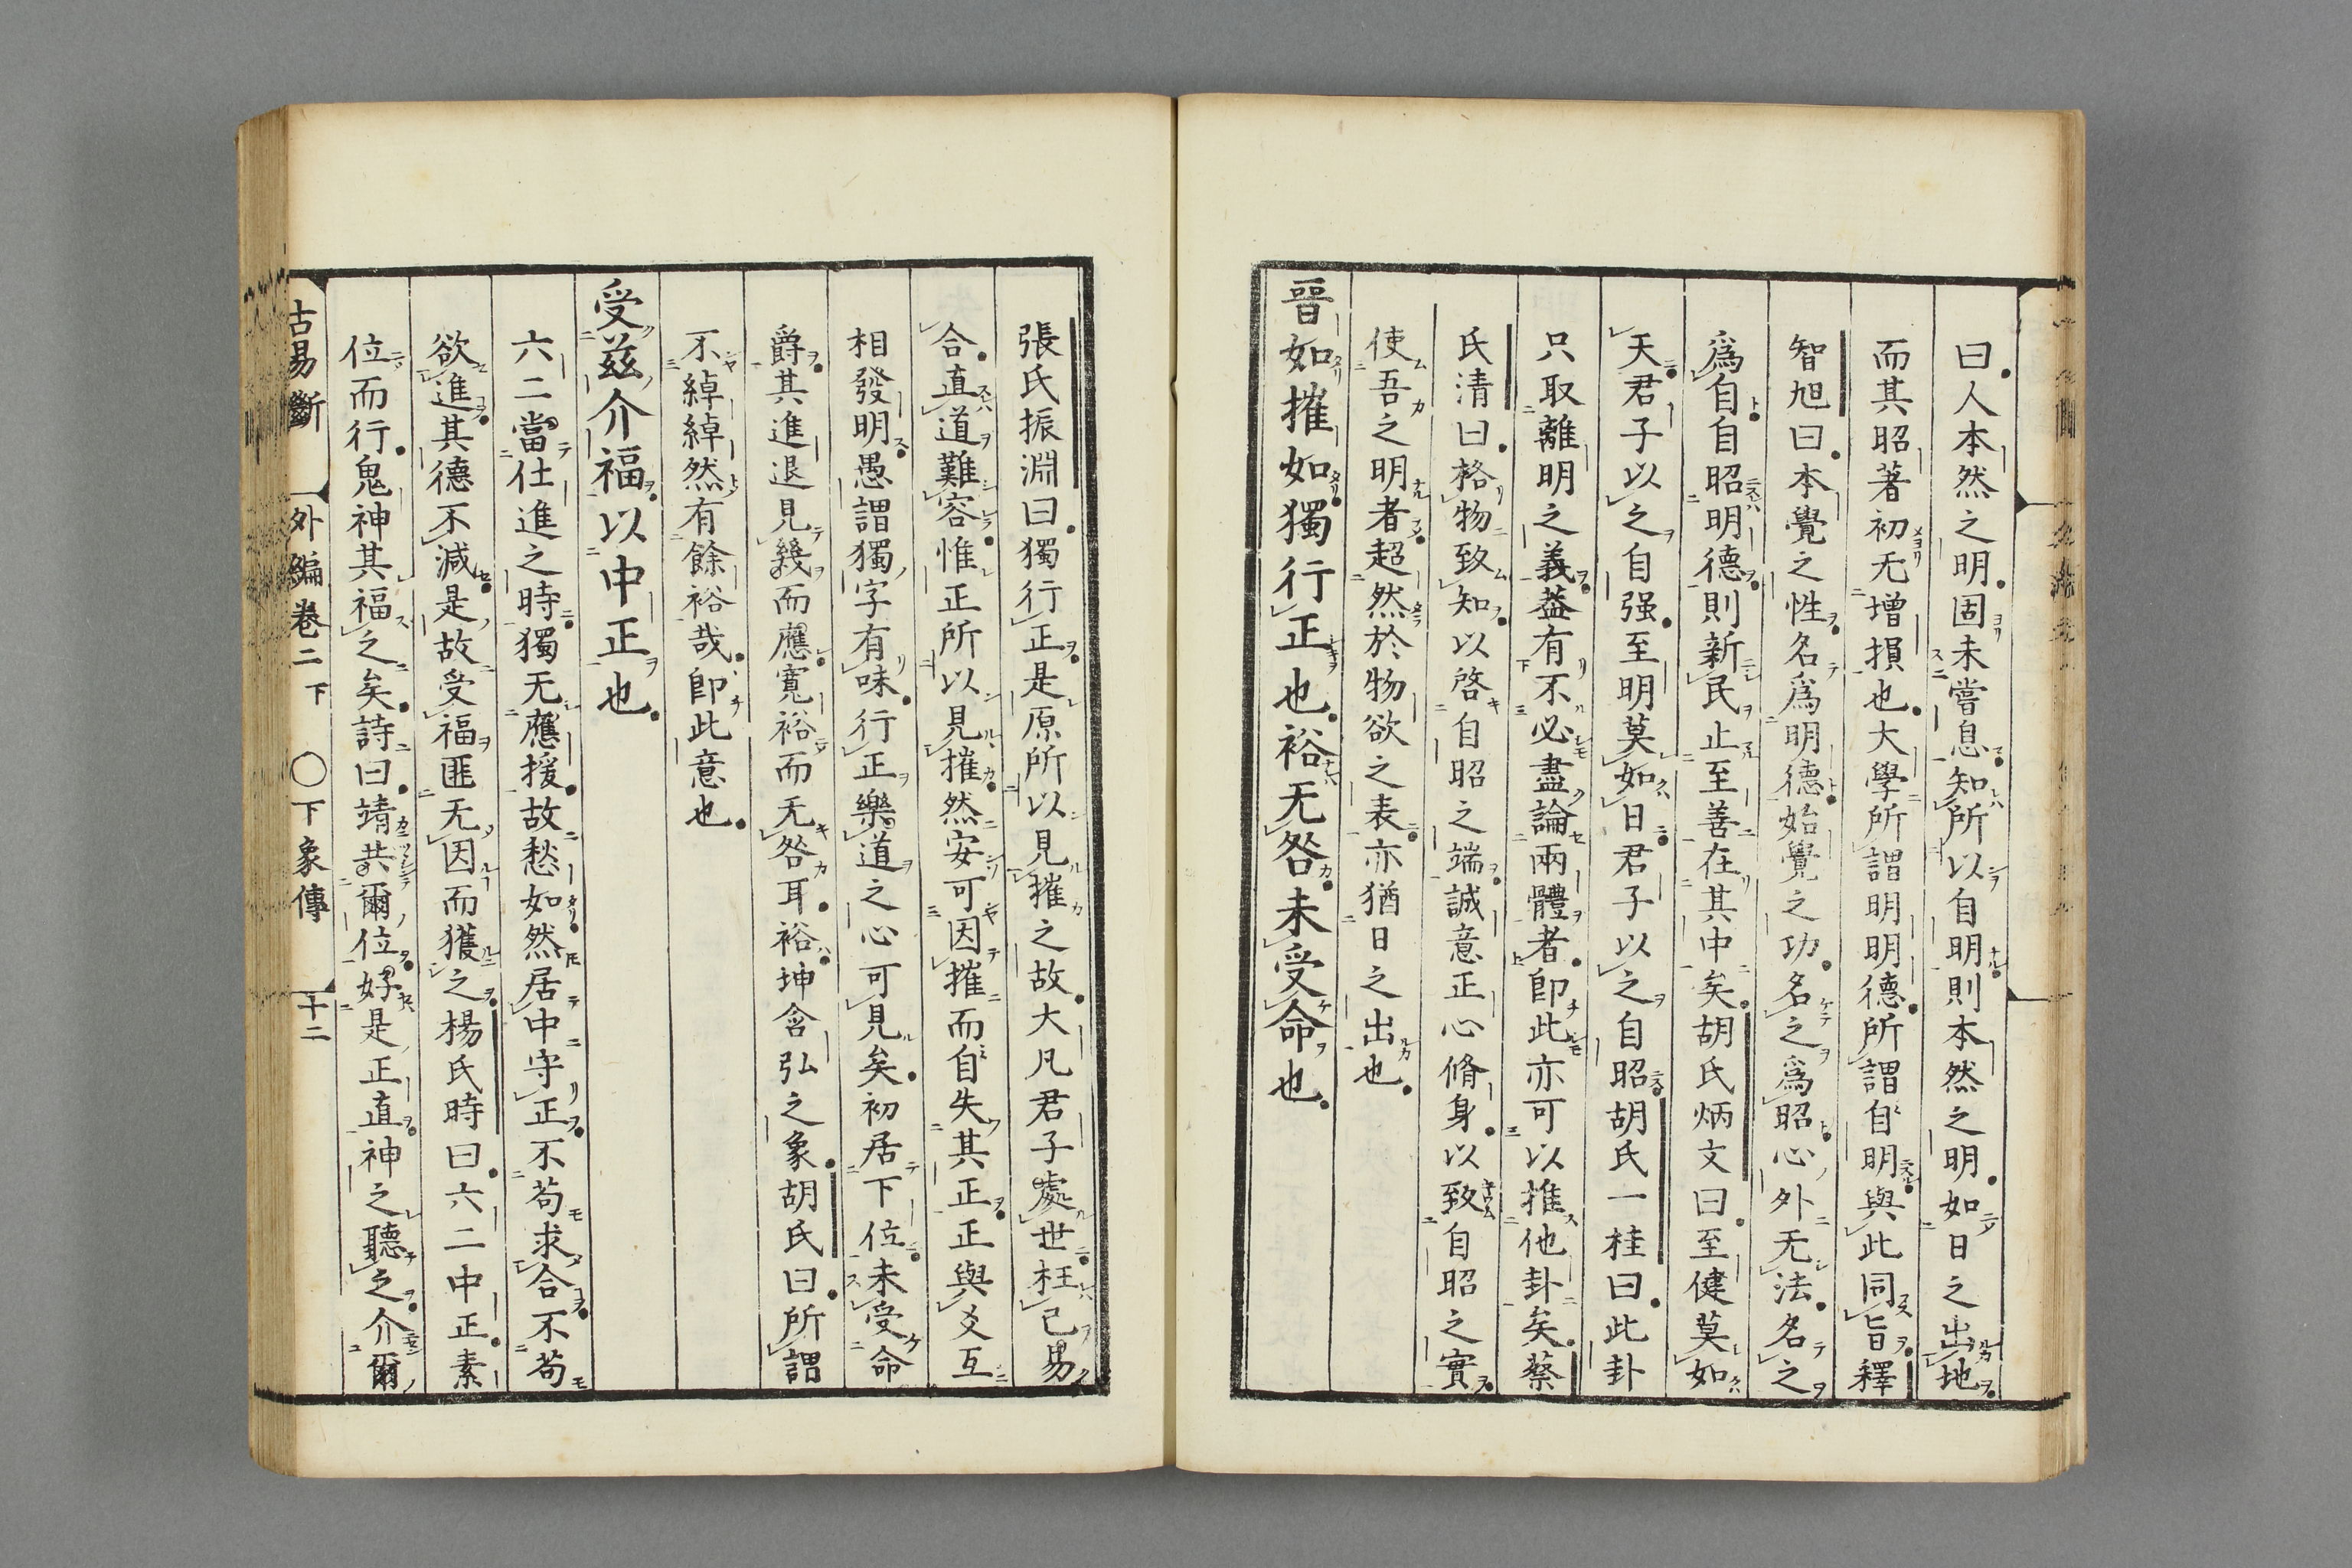 曰人本然之明固未嘗息知所以自明則本然之明如日之出地
而其昭著初无增損也大學所謂明明德所謂自明與此同旨釋
智旭曰本覺之性名爲明德始覺之功名之爲昭心外无法名之
爲自自昭明德則新民止至善在其中矣胡氏炳文曰至健莫如
天君子以之自强至明莫如日君子以之自昭胡氏一桂曰此卦
只取離明之義葢有不必盡論兩體者卽此亦可以推他卦矣蔡
氏清曰格物致知以啓自昭之端誠意正心脩身以致自昭之實
使吾之明者超然於物欲之表亦猶日之出也
晉如摧如獨行正也裕无咎未受命也
張氏振淵曰獨行正是原所以見摧之故大凡君子處世枉己易
合直道難容惟正所以見摧然安可因摧而自失其正正與爻互
相發明愚謂獨字有味行正樂道之心可見矣初居下位未受命
爵其進退見幾而應寬裕而无咎耳裕坤含弘之象胡氏曰所謂
不綽綽然有餘裕哉卽此意也
受茲介福以中正也
六二當仕進之時獨无應援故愁如然居中守正不苟求合不苟
欲進其德不減是故受福匪无因而獲之楊氏時曰六二中正素
位而行鬼神其福之矣詩曰靖共爾位好是正直神之聽之介爾
古易斷 外編卷二下 〇下象傳 十二